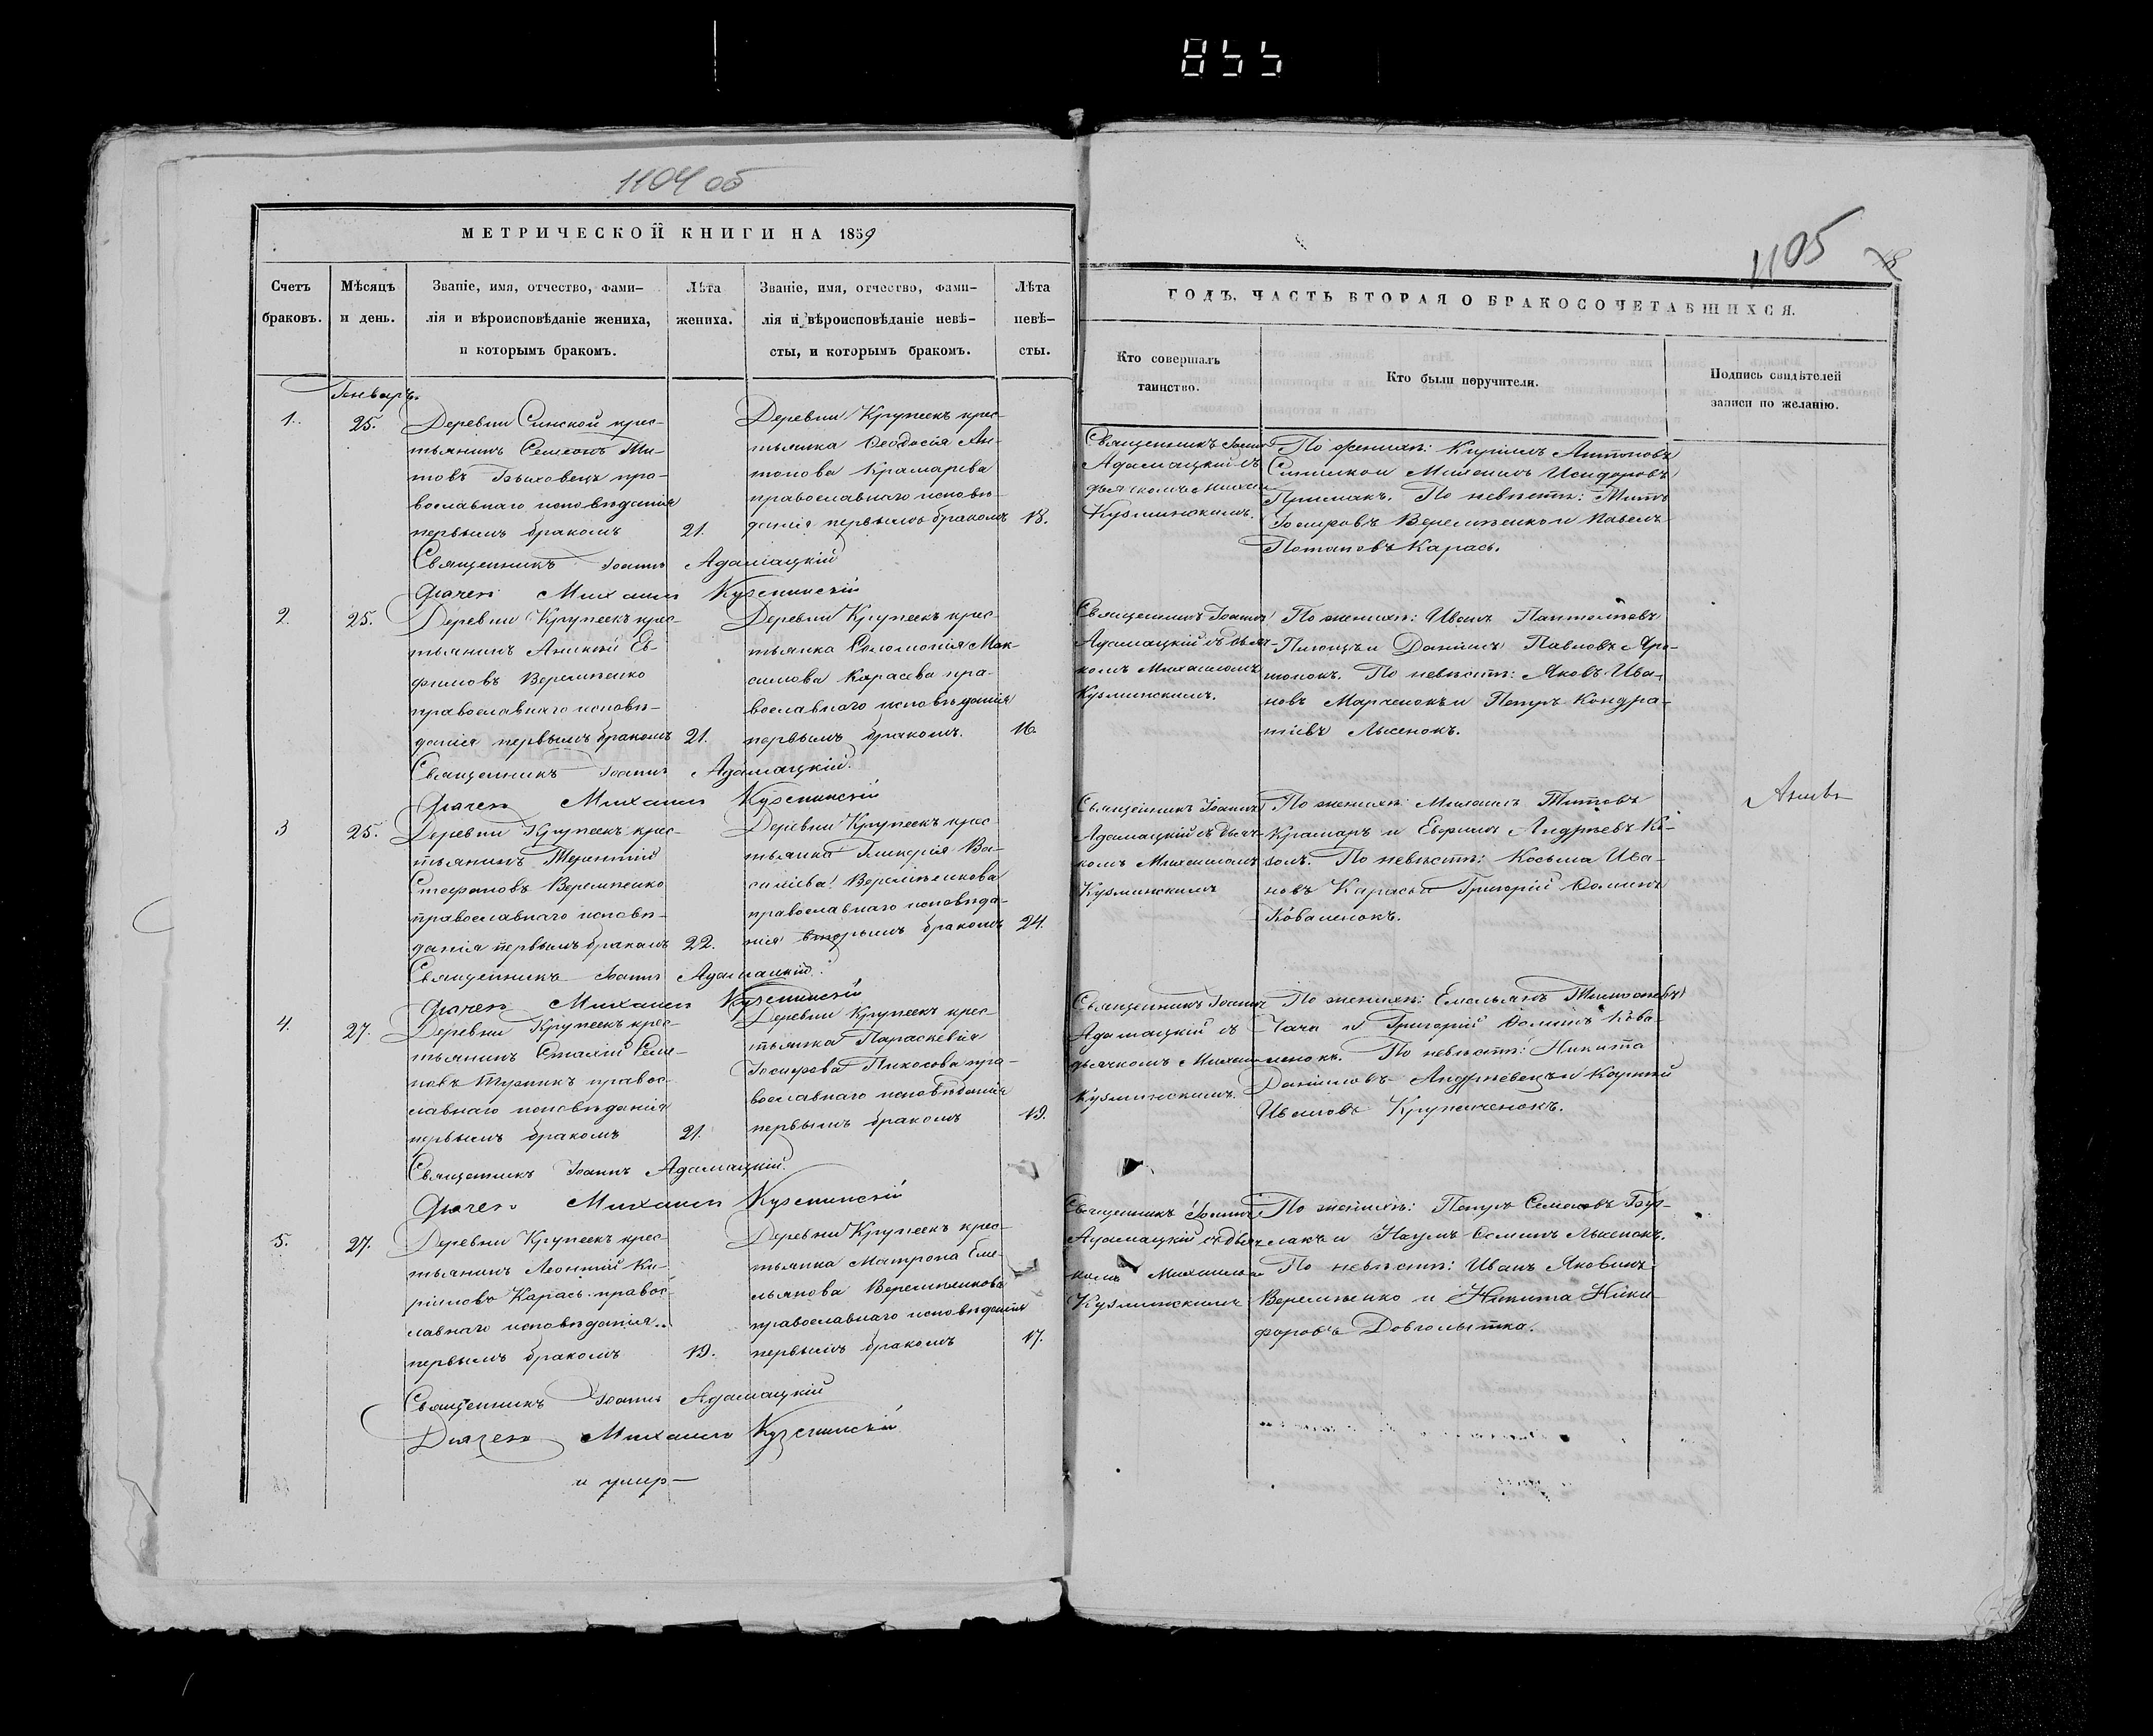 855
1104 об
МЕТРИЧЕСКОЙ КНИГИ НА 1859
Счетъ браковъ.
Мѣсяцъ и день.
Званіе, имя, отчество, фами-
лія и вѣроисповѣданіе жениха,
и которымъ бракомъ.
Лѣта жениха.
Званіе, имя, отчество, фами-
лія и вѣроисповѣданіе невѣ-
сты, и которымъ бракомъ.
Лѣта невѣ-
сты.
Генварь.
1.
25.
Деревни Синской крес-
тьянинъ Семеонъ Ти-
товъ Быховецъ пра-
вославнаго исповѣданія
первымъ бракомъ
21.
Деревни Крупеекъ крес-
тьянка Ѳеодосія Ан-
тонова Крамарева
православнаго исповѣ-
данія первымъ бракомъ
18.
Священникъ Іоаннъ Адамацкій
Дьячекъ Михаилъ Кузминскій
2.
25.
Деревни Крупеекъ крес-
тьянинъ Алексѣй Еѳ-
фимовъ Веремѣенко
православнаго исповѣ-
данія первымъ бракомъ
21.
Деревни Крупеекъ крес-
тьянка Соломонія Мак-
симова Карасева пра-
вославнаго исповѣданія
первымъ бракомъ.
16.
Священникъ Іоаннъ Адамацкій.
Дьячекъ Михаилъ Кузминскій
3
25.
Деревни Крупеекъ крес-
тьянинъ Терентій
Стефановъ Веремѣенко
православнаго исповѣ-
данія первымъ бракомъ
22.
Деревни Крупеекъ крес-
тьянка Гликерія Ва-
силіева Веремѣенкова
православнаго исповѣда-
нія вторымъ бракомъ
24.
Священникъ Іоаннъ Адамацкій.
Дьячекъ Михаилъ Кузминскій
4.
27.
Деревни Крупеекъ крес-
тьянинъ
православ-
славнаго исповѣданія
первымъ бракомъ
21.
Деревни Крупеекъ крес-
тьянка Параскевія
Іосифова пра-
вославнаго исповѣданія
первымъ бракомъ
19.
Священникъ Іоаннъ Адамацкій.
Дьячекъ Михаилъ Кузминскій
5.
27.
Деревни Крупеекъ крес-
тьянинъ Леонтій Ки-
риловъ Карась правос-
лавнаго исповѣданія
первымъ бракомъ
19.
Деревни Крупеекъ крес-
тьянка Матрона Еме-
льянова Веремѣенкова
православнаго исповѣданія
первымъ бракомъ
17.
Священникъ Іоаннъ Адамацкій
Дьячекъ Михаилъ Кузминскій
1105
ГОДЪ, ЧАСТЬ ВТОРАЯ О БРАКОСОЧЕТАВШИХСЯ.
Кто совершалъ
таинство.
Кто были поручители.
Подпись свидѣтелей
записи по желанію.
Священникъ Іоаннъ
Адамацкій съ
дьячкомъ Михаи
Кузминскимъ.
По женихѣ: Кирилъ Антоновъ
Михаилъ Исидоровъ
Примакъ. По невѣстѣ: Титъ
Іосифовъ Веремѣенко и Павелъ
Потаповъ Карась.
Священникъ Іоаннъ
Адамацкій съ дьяч-
комъ Михаиломъ
Кузминскимъ.
По женихѣ: Иванъ
Даніилъ Павловъ
По невѣстѣ: Яковъ Ива-
новъ Марченокъ и Петръ Кондра-
тіевъ Лысенокъ.
Священникъ Іоаннъ
Адамацкій съ дьяч-
комъ Михаиломъ
Кузминскимъ
По женихѣ: Михаилъ Титовъ
Крамаръ и Евфимъ Андреевъ
По невѣстѣ: Косьма Ива-
новъ Карась и Григорій Ѳоминъ
Коваленокъ.
Священникъ Іоаннъ
Адамацкій съ
дьячкомъ Михаи
Кузминскимъ.
По женихѣ: Емельянъ
и Григорій Ѳоминъ Кова-
ленокъ. По невѣстѣ: Никита
Даніиловъ Андреевецъ и Карпъ
Ивановъ Крупеченокъ.
Священникъ Іоаннъ
Адамацкій съ дьяч-
комъ Михаиломъ
Кузминскимъ
По женихѣ: Петръ Семеновъ Бур-
лакъ и Наумъ Ѳоминъ Лысенокъ.
По невѣстѣ: Иванъ Яковлевъ
Веремѣенко и Никита Ники-
форовъ Довголытка.